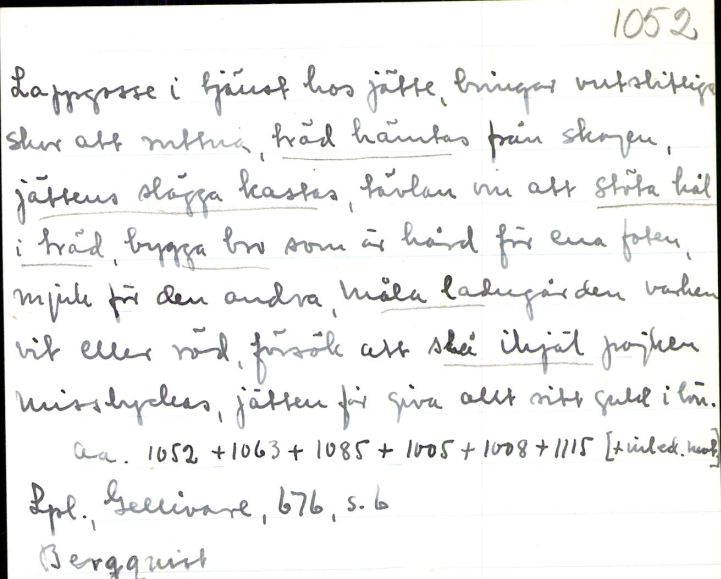 1052
Lappgosse i tjänst hos jätte, bringar outslitliga
skor att ruttna, träd hämtas från skogen,
jättens slägga kastas, tävlan om att stöta hål
i träd, bygga bro som är hård för ena foten,
mjuk för den andra, måla ladugården varken
vit eller röd, försök att slå ihjäl pojken
misslyckas, jätten får giva allt sitt guld i lön.
Aa. 1052 + 1063 + 1085 + 1005 + 1008 + 1115 [+ inled. mot.]
Lpl., Gellivare, 676, s. 6
Bergquist